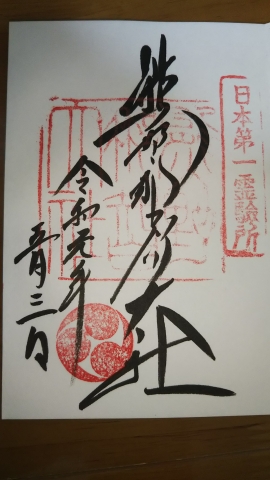 日本第一霊験所
熊野那智大社
令和元年
五月三日